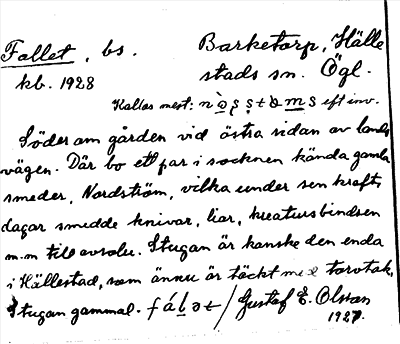 Fallet, bs. Barketorp, Hälle
kb. 1928 stads sn. Ögl.
Kallas mest: eft inv.
Söder om gården vid östra sidan av lands
vägen. Där bo ett par i socknen kända gamla
smeder, Nordström, vilka under sen krafts
dagar smedde knivar, liar, kreatursbindsen
m.m till avsalu. Stugan är kanske den enda
i Hällestad, som ännu är täckt med torvtak.
Stugan gammal. fálət / Gustaf E. Olsson
1927.